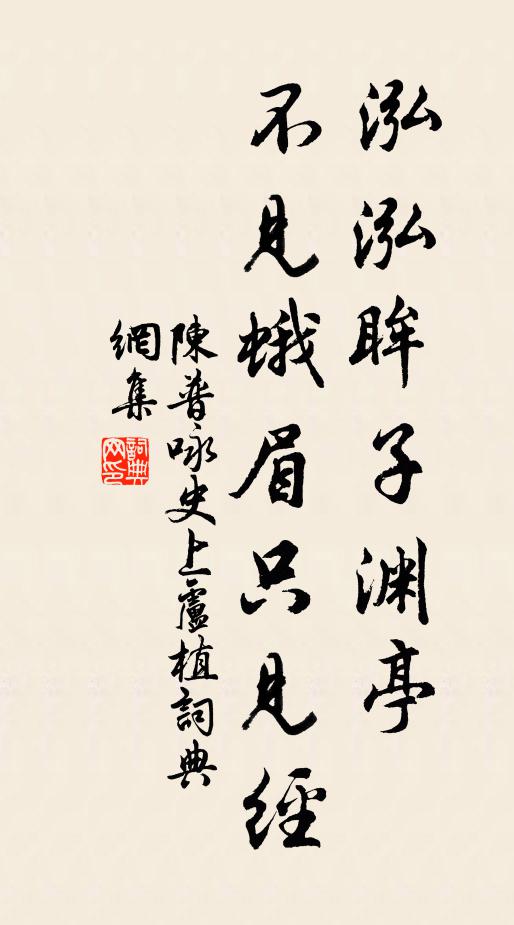 泓泓眸子渊亭
不見蛾眉只見經
陳普咏史上盧植詞典
網集
詞典
网印